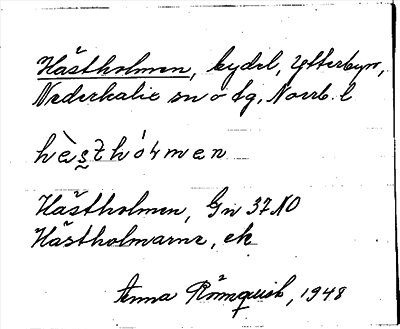 Hästholmen, bydel, Ytterbyn,
Nederkalix sn o tg, Norrb. l
hèʂthó́ɫmen
Hästholmen, Gn 37 NO
Hästholmarne, ek
Anna Rönnquist, 1948